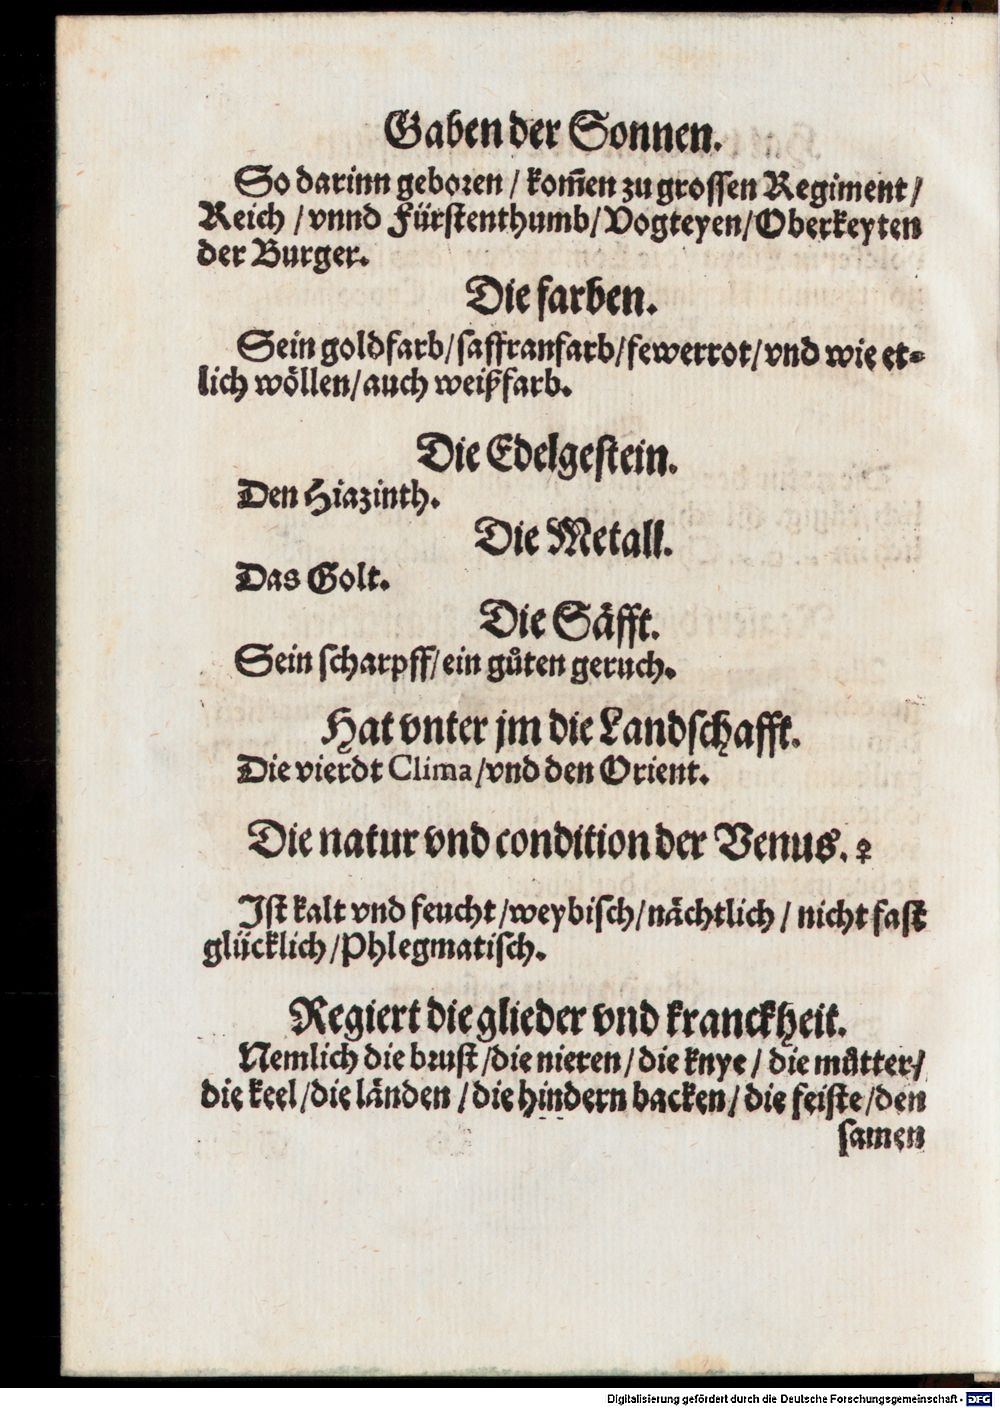 Gaben der Sonnen.
So darinn geboꝛen / kom̄en zu grossen Regiment /
Reich / vnnd Fürstenthumb / Vogteyen / Oberkeyten
der Burger.
Die farben.
Sein goldfarb / saffranfarb / fewerrot / vnd wie et⸗
lich wöllen / auch weißfarb.
Die Edelgestein.
Den Hiazinth.
Die Metall.
Das Golt.
Die Säfft.
Sein scharpff / ein gůten geruch.
Hat vnter jm die Landschafft.
Die vierdt Clima / vnd den Orient.
Die natur vnd condition der Venus. ♀
Ist kalt vnd feucht / weybisch / nächtlich / nicht fast
glücklich / Phlegmatisch.
Regiert die glieder vnd kranckheit.
Nemlich die bꝛust / die nieren / die knye / die můtter /
die keel / die länden / die hindern backen / die feiste / den
samen
Digitalisierung gefördert durch die Deutsche Forschungsgemeinschaft - DFG